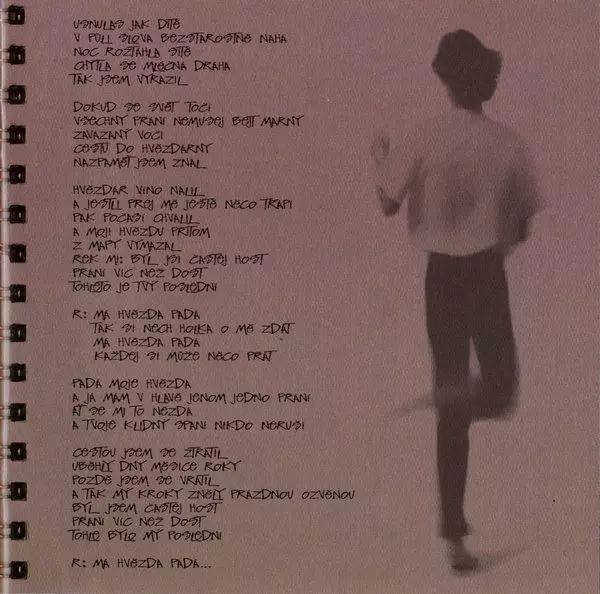 USNULAS JAK DÍTĚ
V PŮLI SLOVA BEZSTAROSTNĚ NAHÁ
NOC ROZTÁHLA SÍTĚ
CHYTLA SE MLÉČNÁ DRÁHA
TAK JSEM VYRAZIL
DOKUD SE SVĚT TOČÍ
VŠECHNY PŘÁNÍ NEMUSEJ BEJT MARNÝ
ZAVÁZANÝ VOČI
CESTU DO HVĚZDÁRNY
NAZPAMĚŤ JSEM ZNAL
HVĚZDÁŘ VÍNO NALIL
A JESTLI PREJ MĚ JEŠTĚ NĚCO TRÁPÍ
PAK POČASÍ CHVÁLIL
A MOJI HVĚZDU PŘITOM
Z MAPY VYMAZAL
ŘEK MI: BYL JSI ČASTEJ HOST
PŘÁNÍ VÍC NEŽ DOST
TOHLETO JE TVÝ POSLEDNÍ
R: MÁ HVĚZDA PADÁ
TAK SI NECH HOLKA O MĚ ZDÁT
MÁ HVĚZDA PADÁ
KAŽDEJ SI MŮŽE NĚCO PŘÁT
PADÁ MOJE HVĚZDA
A JÁ MÁM V HLAVĚ JENOM JEDNO PŘÁNÍ
AŤ SE MI TO NEZDÁ
A TVOJE KLIDNÝ SPANÍ NIKDO NERUŠÍ
CESTOU JSEM SE ZTRATIL
UBĚHLY DNY MĚSÍCE ROKY
POZDĚ JSEM SE VRÁTIL
A TAK MÝ KROKY ZNĚLY PRÁZDNOU OZVĚNOU
BYL JSEM ČASTEJ HOST
PŘÁNÍ VÍC NEŽ DOST
TOHLE BYLO MÝ POSLEDNÍ
R: MÁ HVĚZDA PADÁ...